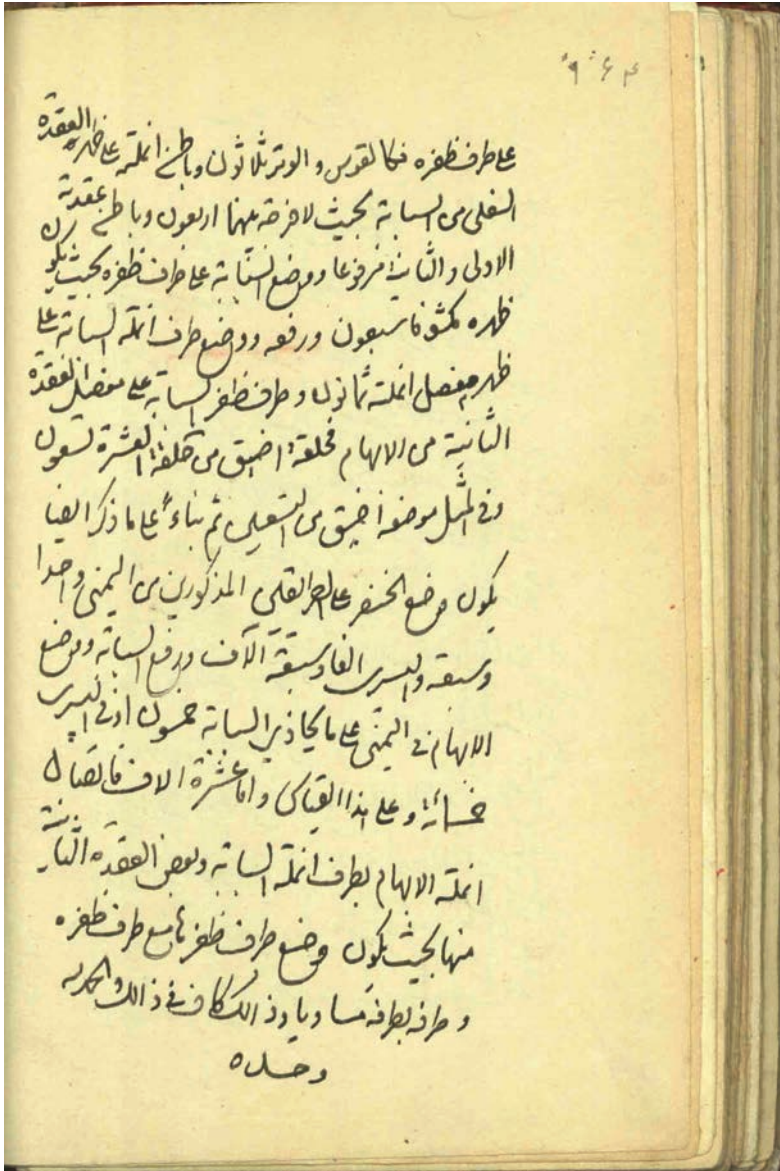 ٩٦٤
على طرف ظفره فكالقوس والوتر ثلاثون وباطن انملته على ظهر العقدة
السفلى من السبابة بحيث لا فرجة بينهما اربعون وباطن عقدته
الاولى والثانية مرفوعا ووضع السبابة على طرف ظفره بحيث يكون
ظهره مكشوفا سبعون ورفعه ووضع طرف انملة السبابة على
ظهر مفصل انملته ثمانون وطرف ظفر السبابة على مفصل العقدة
الثانية من الابهام فحلقة اضيق من حلقة العشرة تسعون
وفى المثل موضعه اضيق من التسعين ثم بناءً على ما ذكر ايضا
يكون وضع الخنصر على المذكورين من اليمنى واحدا
وسبعة واليسرى الفا وسبعة آلاف ورفع السبابة ووضع
الابهام فى اليمنى على ما يحاذى السبابة خمسون وفى اليسرى
خمسمائة وعلى هذا القياس واما عشرة الاف فايصال
انملة الابهام بطرف انملة السبابة وبعض العقدة الثانية
منها بحيث يكون وضع طرف ظفرها مع طرف ظفره
وطرفه بطرفها مساويا وذالك كاف فى ذالك والحمد لله
وحده